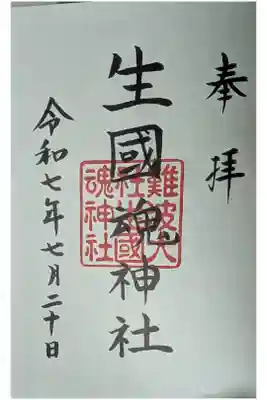 奉拝
生國魂神社
難波大
社生國
魂神社
令和七年七月二十日